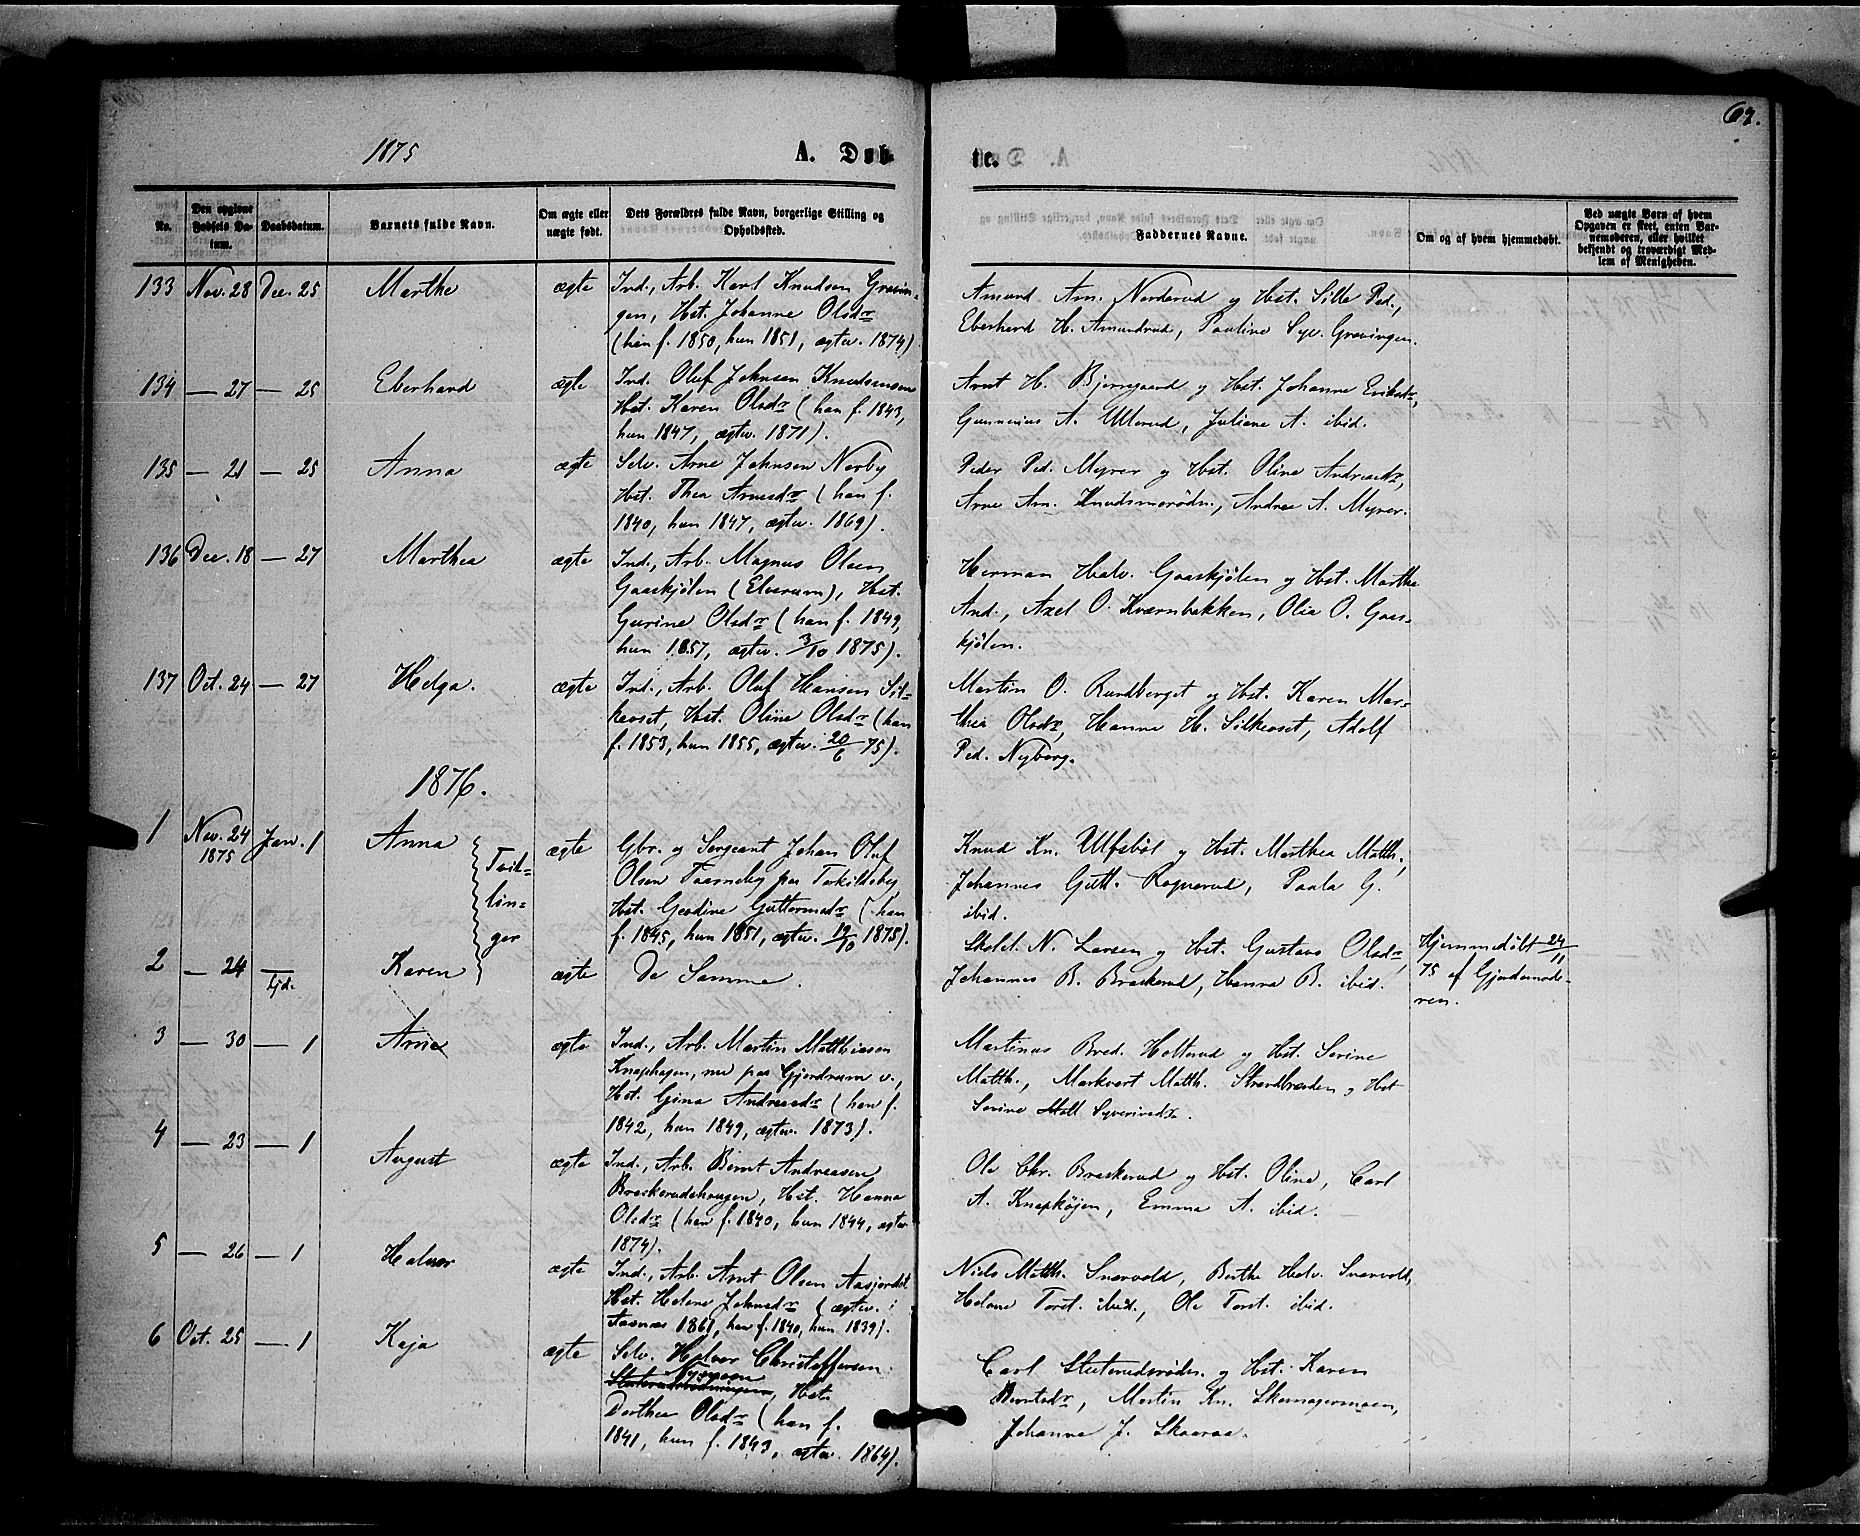 67.
1875 A. Døb- te.
No.
Den opgivne Fødsels Da-tum.
Daabsdatum.
Barnets fulde Navn.
Om ægte eller uægte født.
Dets Forældres fulde Navn, borgerlige Stilling og Opholdssted.
Faddernes Navne.
Om og af hvem hjemmedøbt.
Ved uægte Barn af hvem Opgaven er skeet, enten Bar-nemoderen, eller hvilket bekjendt og troværdigt Med-lem af Menigheden.
133 Nov. 28 Dec. 25 Marthe ægte Ind., Arb. Karl Knudsen Grævin-
gen, Hst. Johanne Olsdr
(han f. 1850, hun 1851, ægtev. 1874)
Amund Am. Norderud og Hst. Sille Ped.,
Eberhard H. Amundrud, Pauline Syv. Grævingen.
134 — 27 — 25 Eberhard ægte Ind. Oluf Johnsen Knudsmoen
Hst. Karen Olsdr (han f. 1843,
hun 1847, ægtev. 1871).
Arnt H. Bjørngaard og Hst. Johanne Eriksdr,
Gunnerius A. Ullerud, Juliane A. ibid.
135 — 21 — 25 Anna ægte Selv. Arne Johnsen Norby
Hst. Thea Arnesdr (han f.
1840, hun 1847, ægtev. 1869).
Peder Ped. Myrer og Hst. Oline Andreasdr,
Arne Arn. Knudsmorødn., Andrea A. Myrer.
136 Dec. 18 — 27 Marthea ægte Ind., Arb. Magnus Olsen
Gaaskjølen (Elverum), Hst.
Gurine Olsdr (han f. 1849,
hun 1857, ægtev. 3/10 1875).
Herman Halv. Gaaskjølen og Hst. Marthe
And., Axel O. Kværnbakken, Olia O. Gaas-
kjølen.
137 Oct. 24 — 27 Helga. ægte Ind., Arb. Oluf Hansen Sil-
keoset, Hst. Oline Olsdr (han
f. 1853, hun 1855, ægtev. 20/6 75).
Martin O. Rundberget og Hst. Karen Mar-
thea Olsdr, Hanne H. Silkeoset, Adolf
Ped. Nyberg.
1876.
1 Nov. 24 1875 Jan. 1 Anna Tvil-lin-ger ægte Gbr. og Sergeant Johan Oluf
Olsen Taarneby paa Torkildsby,
Hst. Geodine Guttormsdr (han
f. 1845, hun 1851, ægtev. 19/10 1875).
Knud Kn. Ulfsbøl og Hst. Marthea Matth.,
Johannes Gutt. Rognerud, Paula G.
ibid.
2 — 24 — Ejd. Karen ægte De Samme.
Skolel. N. Larsen og Hst. Gustava Olsdr,
Johannes B. Braskerud, Hanna B. ibid.
Hjemmedøbt 24/11
75 af Gjordemode-
ren.
3 — 30 — 1 Arne ægte Ind., Arb. Martin Matthiasen
Knaphagen, nu paa Gjerdrum v.,
Hst. Gina Andreasdr (han f.
1842, hun 1849, ægtev. 1873).
Martinus Bred. Holterud og Hst. Serine
Matth., Markvart Matth. Strandbraaden og Hst
Serine Matt Syverinsdr.
4 — 23 — 1 August ægte Ind., Arb. Bernt Andreasen
Braskerudshaugen, Hst. Hanna
Olsdr (han f. 1840, hun 1844, ægtev
1874).
Ole Chr. Braskerud og Hst. Oline, Carl
A. Knapkøjen, Emma A. ibid.
5 — 26 — 1 Halvor ægte Ind., Arb. Arnt Olsen Aasjordet
Hst. Helene Johnsdr (ægtev. i
Aasnæs 1861, han f. 1840, hun 1839).
Niels Matth. Snarvold, Berthe Halv. Snarvold,
Helene Torst. ibid., Ole Torst. ibid.
6 Oct. 25 — 1 Kaja ægte Selv. Halvor Christoffersen
Nysveen
, Hst.
Dorthea Olsdr (han f.
1841, hun f. 1843, ægtev. 1864).
Carl Sluterudsrødn. og Hst. Karen
Berntsdr, Martin Kn. Skamagermoen,
Johanne J. Skaaraa.